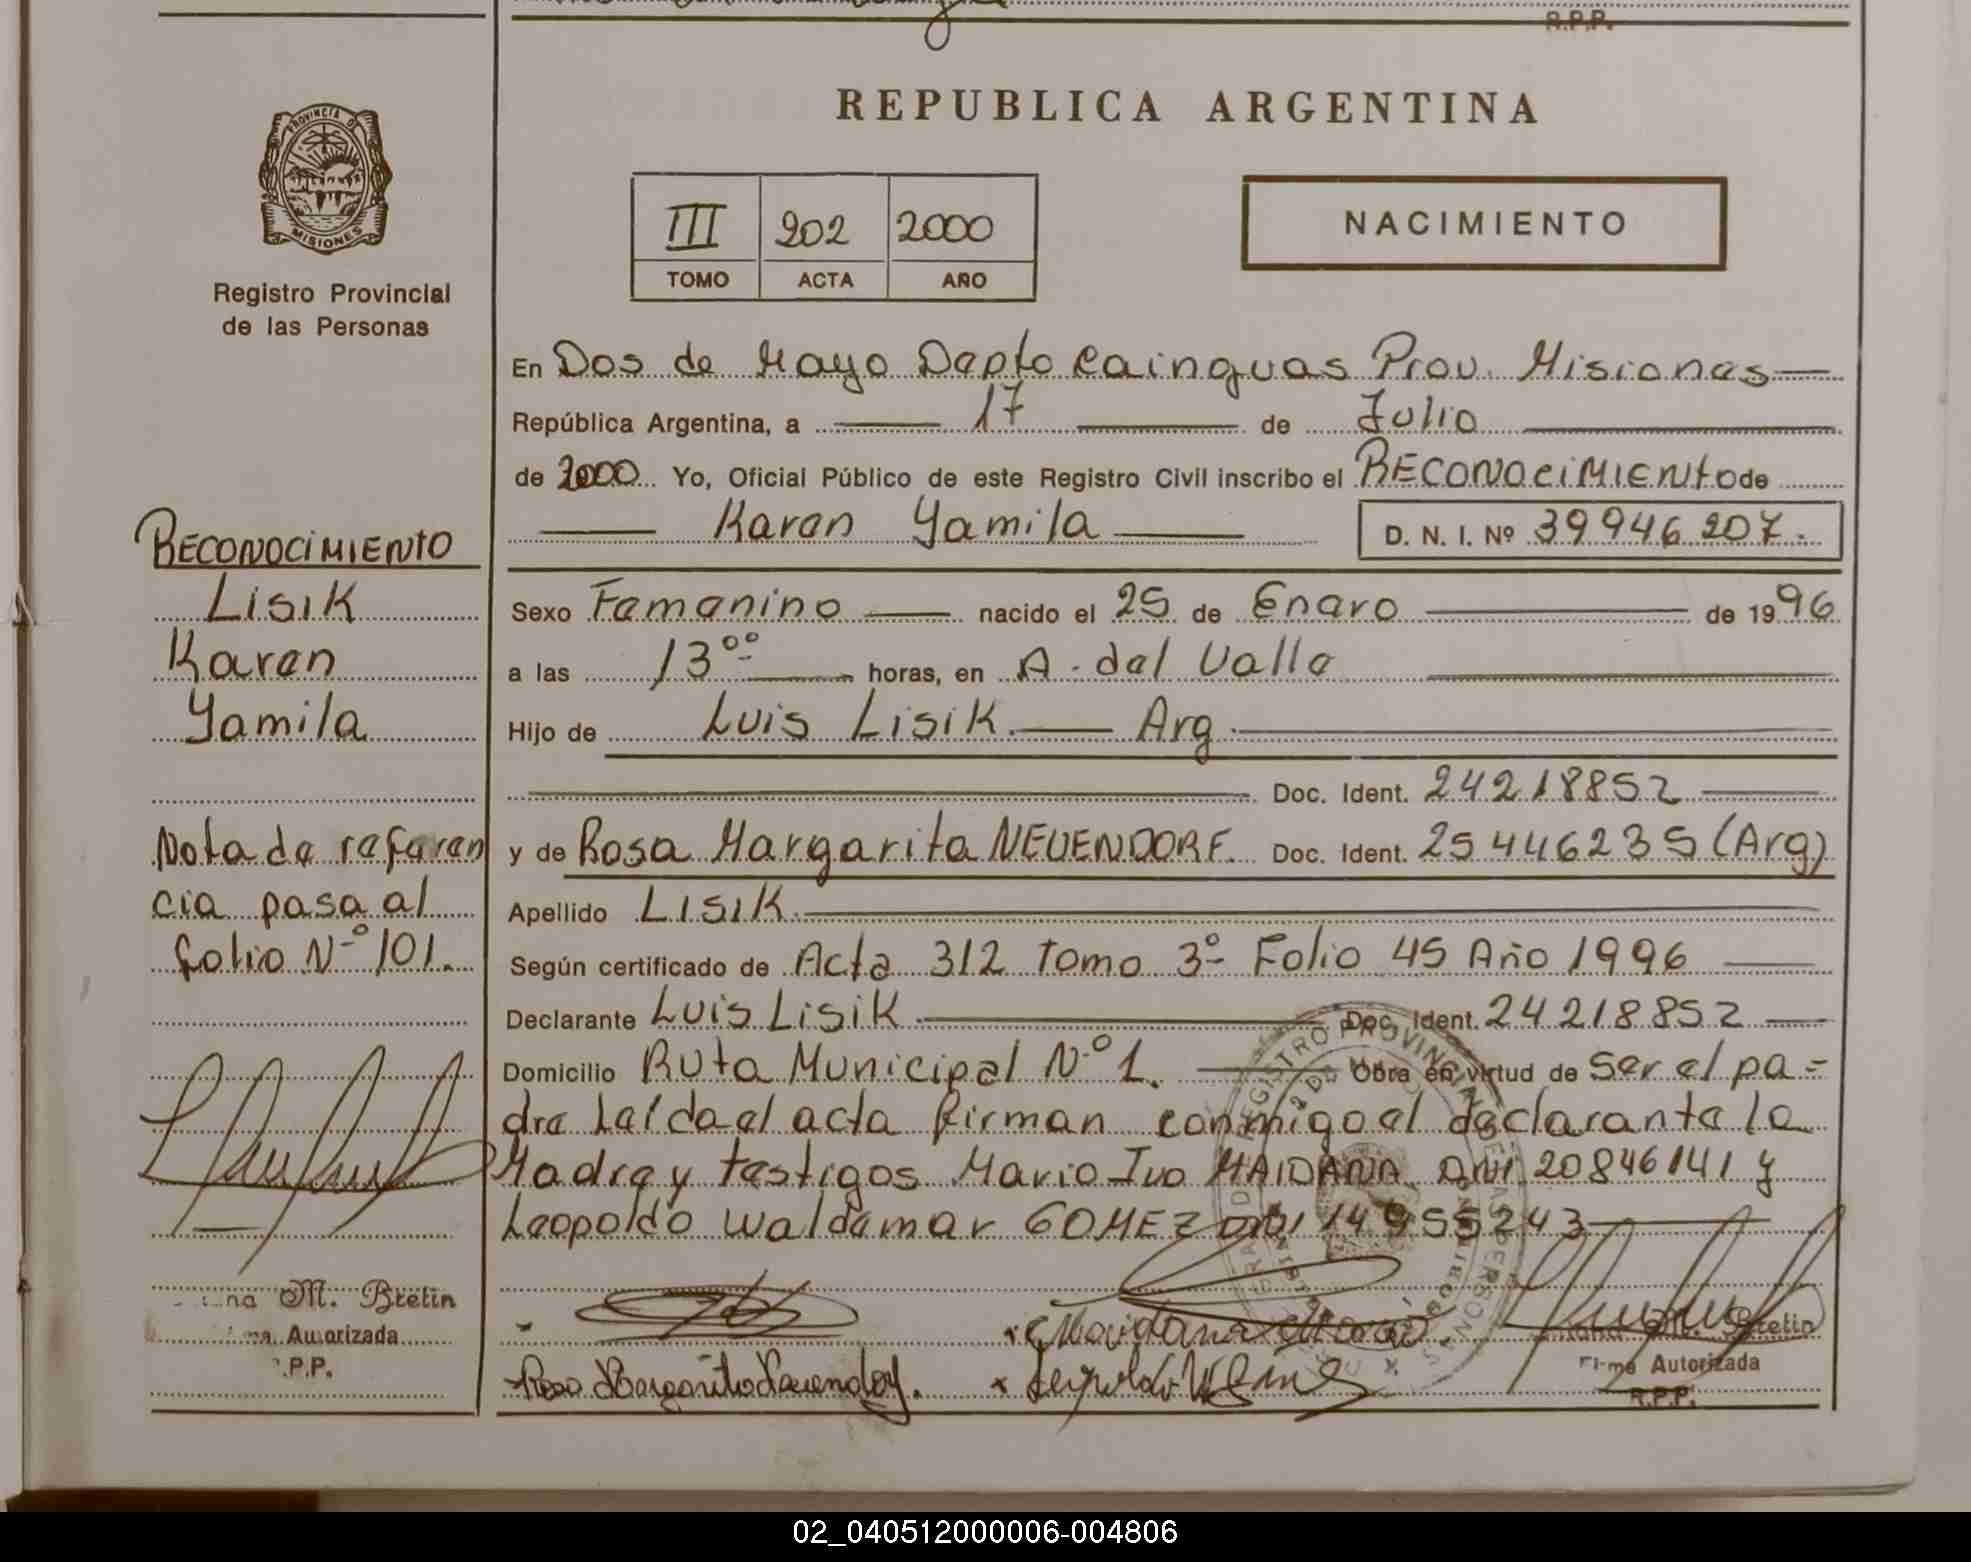 R.P.P.
REPUBLICA ARGENTINA
PROVINCIA DE
MISIONES
III 202 2000
TOMO ACTA AÑO
NACIMIENTO
Registro Provincial
de las Personas
En Dos de Mayo Depto Cainguas Prov. Misiones
República Argentina, a 17 de Julio
de 2000 Yo, Oficial Público de este Registro Civil inscribo el RECONOCIMIENTO de
Karen Yamila D. N. I. Nº 39946207.
RECONOCIMIENTO
Lisik
Karen
Yamila
Nota de referen
cia pasa al
folio Nº 101.
Sexo Femenino nacido el 25 de Enero de 1996
a las 13º° horas, en A. del Valle
Hijo de Luis Lisik Arg.
Doc. Ident. 24218852
y de Rosa Margarita NEUENDORF. Doc. Ident. 25446235 (Arg)
Apellido LISIK
Según certificado de Acta 312 Tomo 3º Folio 45 Año 1996
Declarante Luis Lisik Doc. Ident. 24218852
Domicilio Ruta Municipal Nº 1. Obra en virtud de ser el pa=
dre Leída el acta firman conmigo el declarante la
Madre y testigos Mario Ivo MAIDANA DNI 20846141 y
Leopoldo Waldemar GOMEZ DNI 14955243
REGISTRO PROVINCIAL DE LAS PERSONAS
M. Bretin
Autorizada
.P.P.
Maidana Mario
Rosa Margarita Neuendorf.
Leopoldo W Gomez
Bretin
Firma Autorizada
R.P.P.
02_040512000006-004806